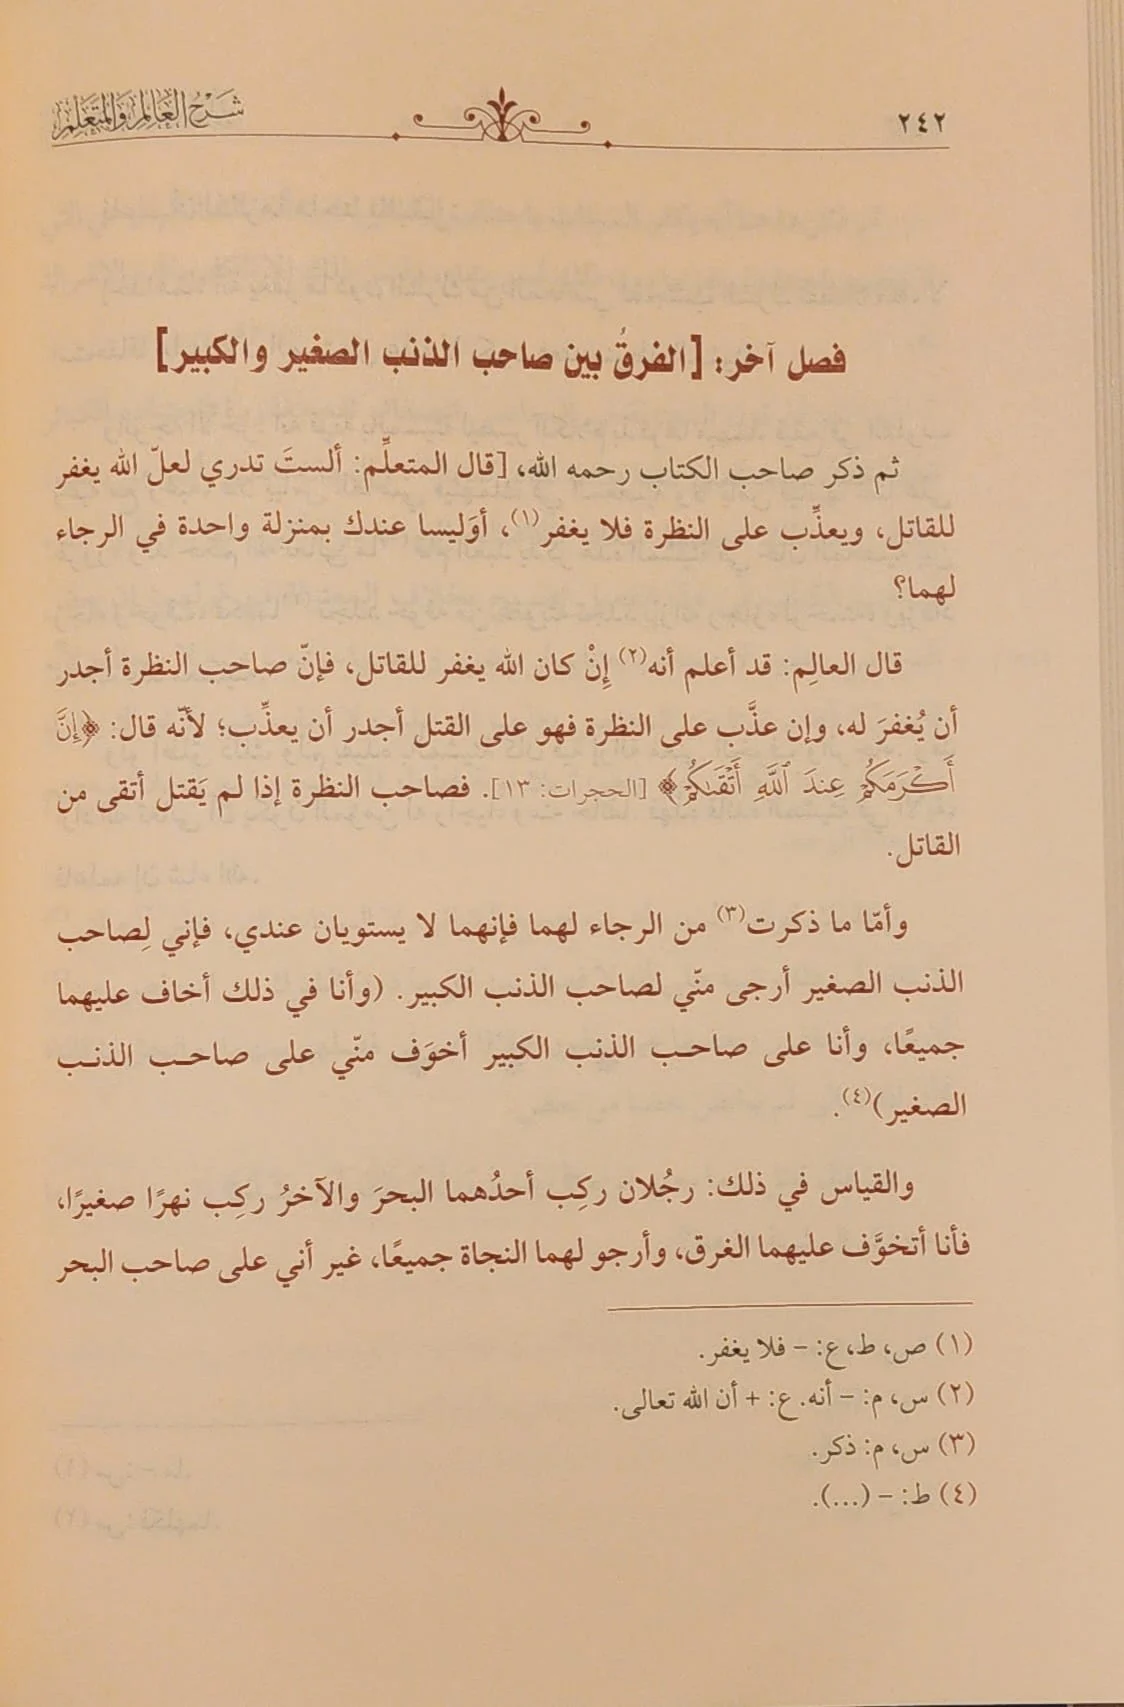 ٢٤٢
شَرْحُ العَالِم وَالمُتَعَلِّم
فصل آخر: [الفرقُ بين صاحب الذنب الصغير والكبير]
ثم ذكر صاحب الكتاب رحمه الله، [قال المتعلِّم: ألستَ تدري لعلّ الله يغفر
للقاتل، ويعذِّب على النظرة فلا يغفر(١)، أوَليسا عندك بمنزلة واحدة في الرجاء
لهما؟
قال العالِم: قد أعلم أنه(٢) إِنْ كان الله يغفر للقاتل، فإنّ صاحب النظرة أجدر
أن يُغفرَ له، وإن عذَّب على النظرة فهو على القتل أجدر أن يعذِّب؛ لأنّه قال: ﴿إِنَّ
أَكْرَمَكُمْ عِندَ ٱللَّهِ أَتْقَىٰكُمْ﴾ [الحجرات: ١٣]. فصاحب النظرة إذا لم يَقتل أتقى من
القاتل.
وأمّا ما ذكرت(٣) من الرجاء لهما فإنهما لا يستويان عندي، فإني لِصاحب
الذنب الصغير أرجى منّي لصاحب الذنب الكبير. (وأنا في ذلك أخاف عليهما
جميعًا، وأنا على صاحب الذنب الكبير أخوَف منّي على صاحب الذنب
الصغير)(٤).
والقياس في ذلك: رجُلان ركِب أحدُهما البحرَ والآخرُ ركِب نهرًا صغيرًا،
فأنا أتخوَّف عليهما الغرق، وأرجو لهما النجاة جميعًا، غير أني على صاحب البحر
(١) ص، ط، ع: – فلا يغفر.
(٢) س، م: – أنه. ع: + أن الله تعالى.
(٣) س، م: ذكر.
(٤) ط: – (...).